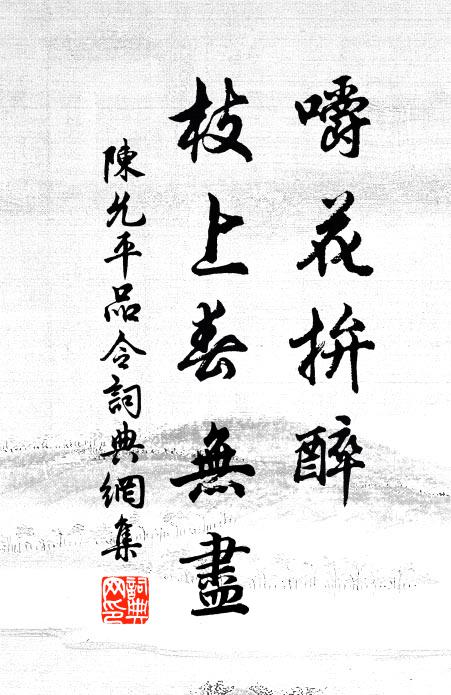 嚼花拚醉
枝上春無盡
陳允平品令詞典網集
詞典網印